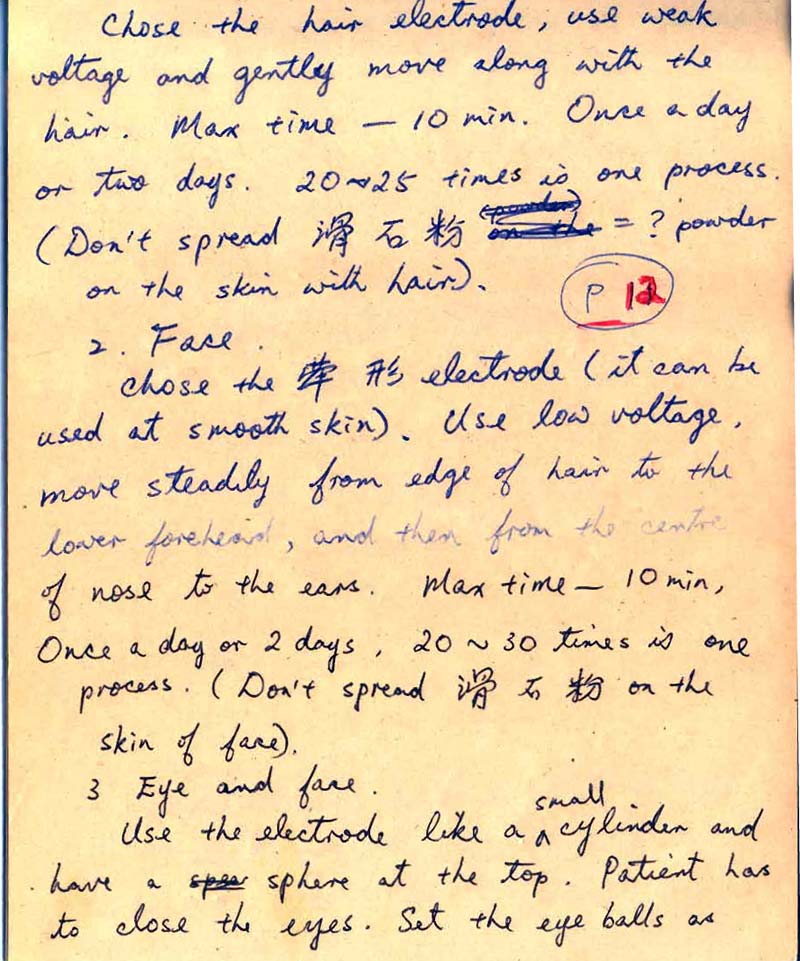 Chose the hair electrode, use weak
voltage and gently move along with the
hair. Max time — 10 min. Once a day
or two days. 20~25 times is one process.
(Don't spread 滑石粉 (powder) on the = ? powder
on the skin with hair).
P 12
2. Face.
Chose the 形 electrode (it can be
used at smooth skin). Use low voltage,
move steadily from edge of hair to the
lower forehead, and then from the centre
of nose to the ears. Max time — 10 min,
Once a day or 2 days, 20 ~ 30 times is one
process. (Don't spread 滑石粉 on the
skin of face).
3 Eye and face.
Use the electrode like a small cylinder and
have a sphere at the top. Patient has
to close the eyes. Set the eye balls as